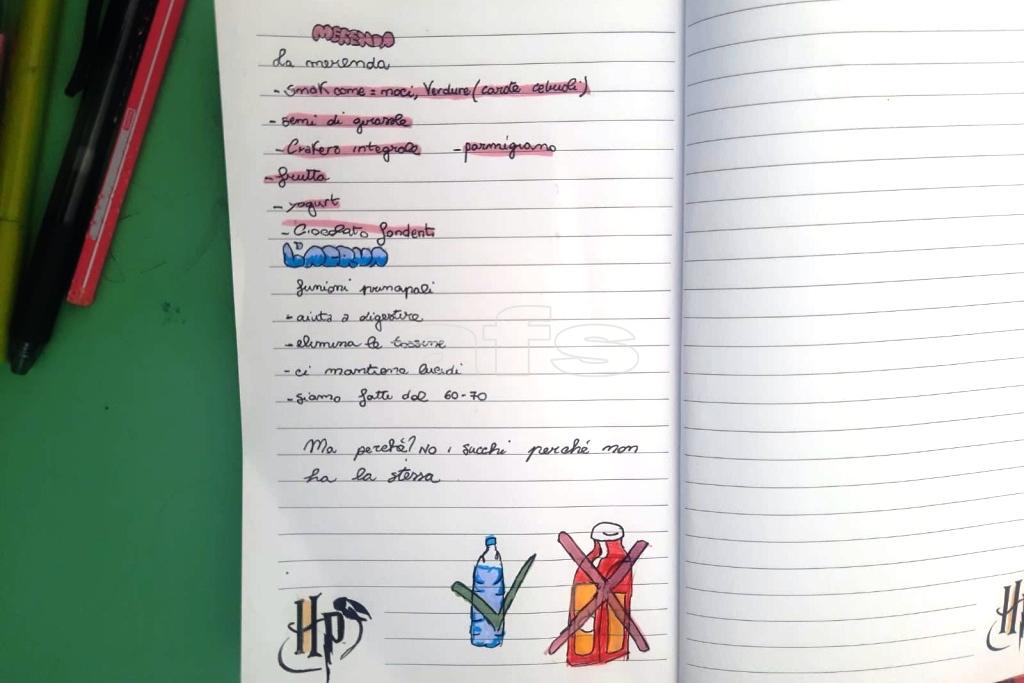 MERENDA
La merenda
- Smak come = noci, Verdure (carote cetrioli)
- semi di girasole
- Crakers integrale - parmigiano
- frutta
- yogurt
- Cioccolato fondenti
L'ACQUA
funzioni principali
- aiuta a digerire
- elimina le tossine
- ci mantiene lucidi
- siamo fatte dal 60-70
Ma perché? No i succhi perché non
ha la stessa
afs
HP